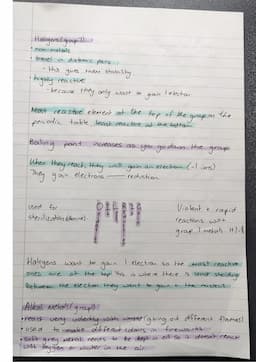 Halogens (group 7)
• non-metals
• travel in diatomic pairs
- this gives them stability
• highly reactive
- because they only want to gain 1 electron
Most reactive element at the top of the group on the
periodic table, least reactive at the bottom
Boiling point increases as you go down the group
When they react, they will gain an electron (-1 ions)
They gain electrons — reduction
used for
sterilisation
Violent + rapid
reactions with
group 1 metals
Halogens want to gain 1 electron so the most reactive
ones are at the top this is where there is least shielding
between the electron they want to gain + the nucleus
Alkali metals (group 1)
• react very violently with water (giving out different flames)
• used to make different colours in fireworks
• soft grey metal needs to be kept in oil so it doesn't react
with oxygen + water in the air